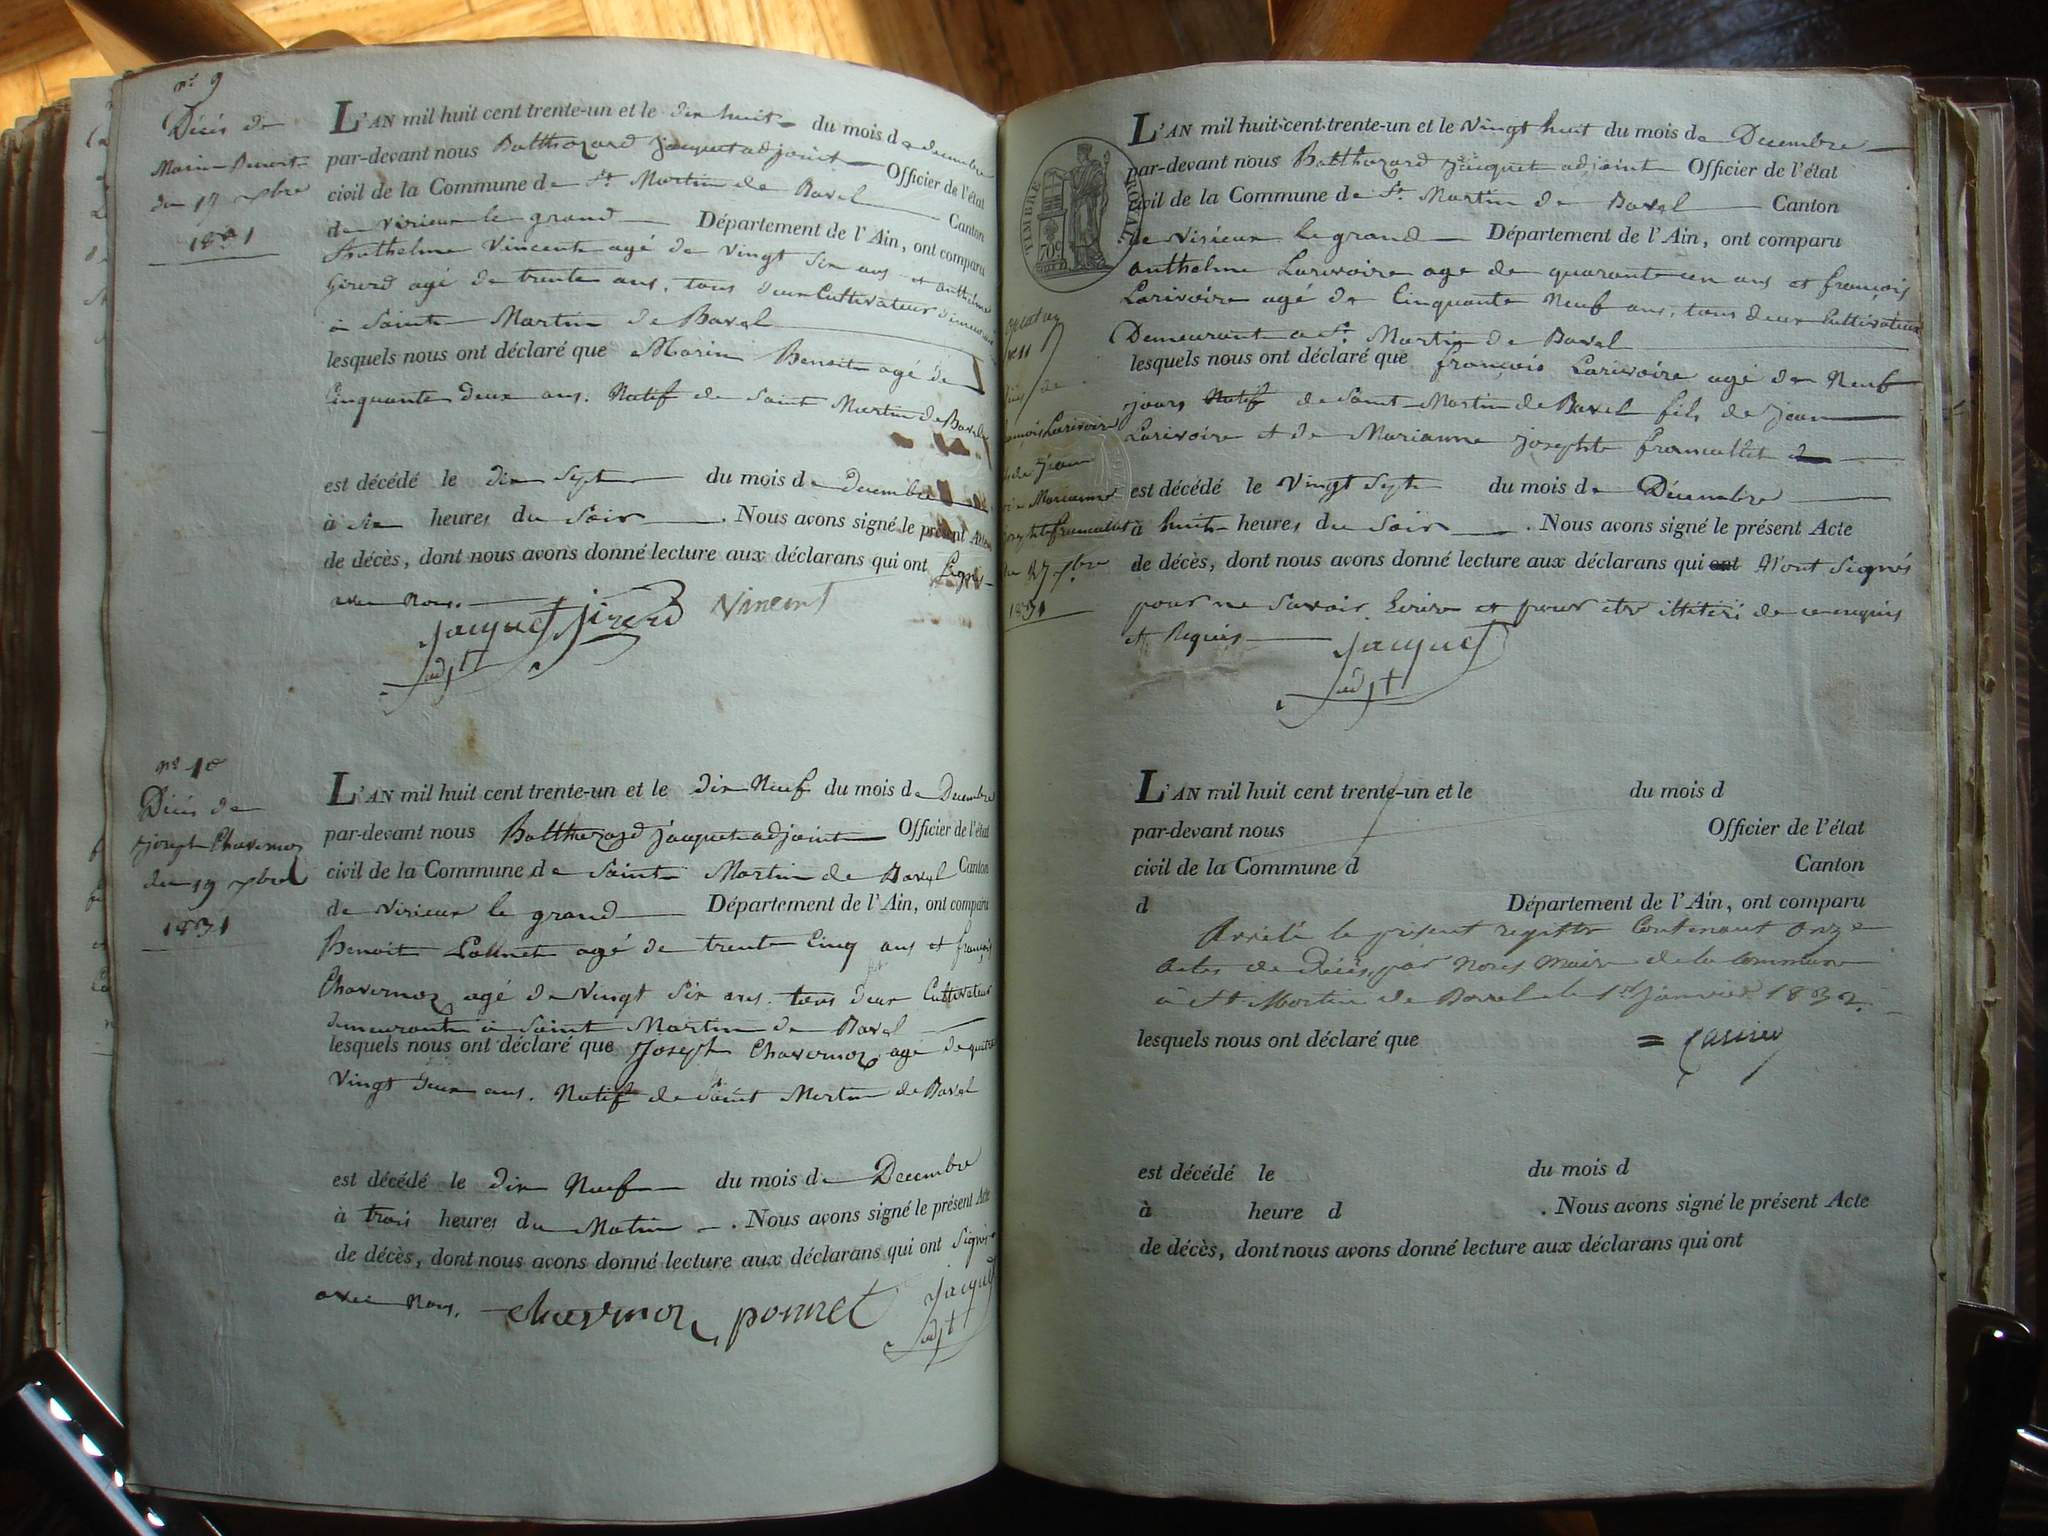 n° 9
Décès de
Marin Benoit
du 17 xbre
1831
L'AN mil huit cent trente-un et le dix huit du mois de decembre
par-devant nous Balthazard jacquet adjoint Officier de l'état
civil de la Commune de St. Martin de Bavel Canton
de virieux le grand Département de l'Ain, ont comparu
Anthelme Vincent agé de vingt six ans et anthelme
Girerd agé de trente ans, tous deux Cultivateur
à Saint Martin de Bavel
lesquels nous ont déclaré que Marin Benoit agé de
Cinquante deux ans. Natif de Saint Martin de Bavel
est décédé le dix sept du mois de decembre
à six heures du Soir . Nous avons signé le présent Acte
de décès, dont nous avons donné lecture aux déclarans qui ont Signé
avec Nous.
jacquet jirerd Vincent
adjt
n° 10
Décès de
joseph Chavernoz
du 19 xbre
1831
L'AN mil huit cent trente-un et le dix Neuf du mois de Decembre
par-devant nous Balthazard jacquet adjoint Officier de l'état
civil de la Commune de Saint Martin de Bavel Canton
de virieux le grand Département de l'Ain, ont comparu
Benoit Ponnet agé de trente Cinq ans et françois
Chavernoz agé de Vingt Six ans. tous deux Cultivateur
demeurant à Saint Martin de Bavel
lesquels nous ont déclaré que Joseph Chavernoz agé de quatre
Vingt deux ans. Natif de Saint Martin de Bavel
est décédé le dix Neuf du mois de Decembre
à trois heures du Matin . Nous avons signé le présent Acte
de décès, dont nous avons donné lecture aux déclarans qui ont Signé
avec Nous. chavernoz ponnet jacquet
adjt
TIMBRE ROYAL
70c
françois Larivoire
de Jean
Marianne
josephte framuallet
du 27 xbre
1831
L'AN mil huit cent trente-un et le Vingt huit du mois de Decembre
par-devant nous Balthazard jacquet adjoint Officier de l'état
civil de la Commune de St. Martin de Bavel Canton
de Virieux le grand Département de l'Ain, ont comparu
anthelme Larivoire age de quarante un ans et françois
Larivoire agé de Cinquante Neuf ans, tous deux Cultivateur
Demeurant a St. Martin de Bavel
lesquels nous ont déclaré que françois Larivoire agé de Neuf
jours Natif de Saint Martin de Bavel fils de jean
Larivoire et de Marianne josephte framuallet
est décédé le Vingt Sept du mois de Décembre
à huit heures du Soir . Nous avons signé le présent Acte
de décès, dont nous avons donné lecture aux déclarans qui ont N'ont Signés
pour ne Savoir Ecrire et pour etre illitéré de ce enquis
et Requis
jacquet
adjt
L'AN mil huit cent trente-un et le du mois d
par-devant nous Officier de l'état
civil de la Commune d Canton
d Département de l'Ain, ont comparu
Arrêté le présent registre Contenant onze
actes de Décès, par nous maire de la Commune
à St Martin de Bavel le 1er janvier 1832.
lesquels nous ont déclaré que
est décédé le du mois d
à heure d . Nous avons signé le présent Acte
de décès, dont nous avons donné lecture aux déclarans qui ont